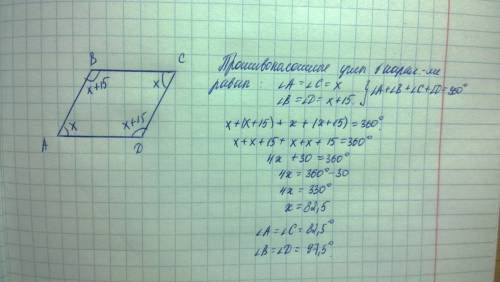 B
C
x+15
x
x
x+15
A
D
Противоположные углы в парал-ме
равны : ∠A=∠C=x
∠B=∠D= x+15. } ∠A+∠B+∠C+∠D=360°
x+(x+15)+x+(x+15)=360°
x+x+15+x+x+15=360°
4x+30=360°
4x=360°-30
4x=330°
x=82,5
∠A=∠C=82,5°
∠B=∠D=97,5°